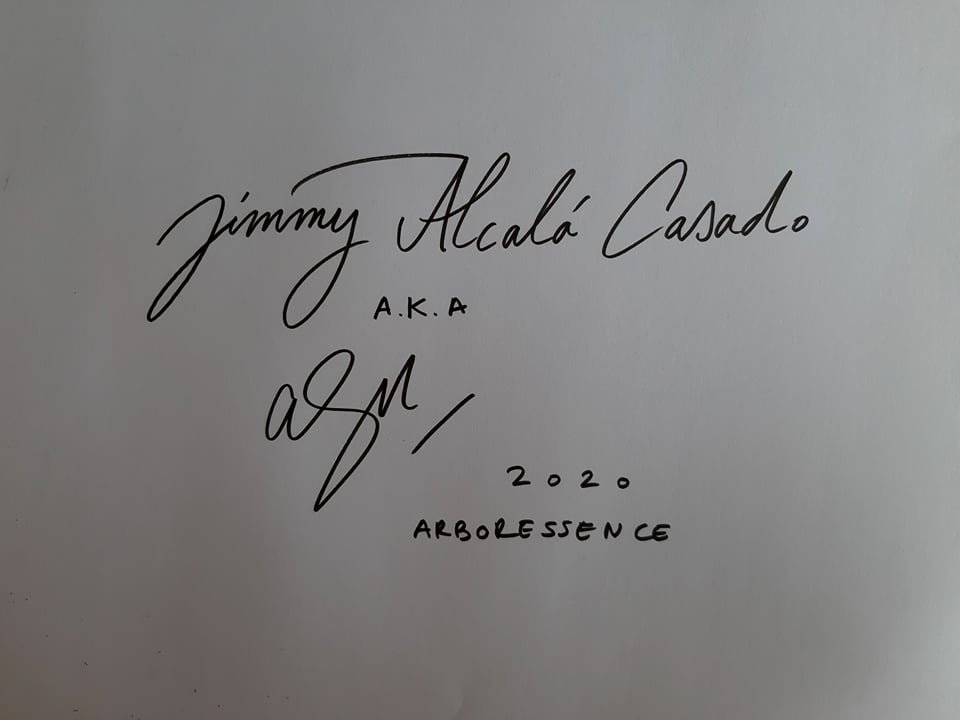 Jimmy Alcalá Casado
A.K.A
2020
ARBORESSENCE